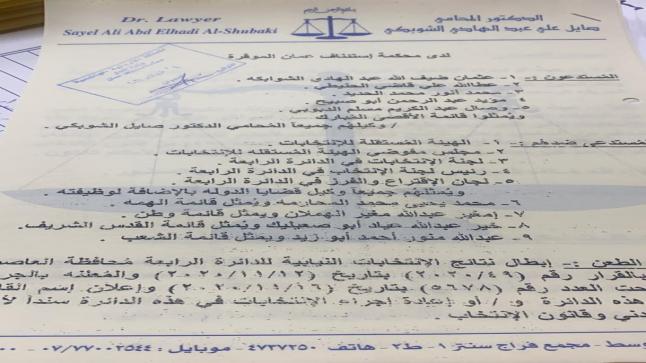 Dr. Lawyer
Sayel Ali Abd Elhadi Al-Shubaki
الدكتور المحامي
صايل علي عبد الهادي الشوبكي
لدى محكمة إستئناف عمان الموقرة
المستدعون :- ١- عثمان ضيف الله عبد الهادي الشوابكه .
٢- عطاالله علي قاضي الحنيطي .
٣- محمد أنور محمد الحديد .
٤- مويد عبد الرحمن أبو صبيح .
٥- عبد الكريم مسلم الدبوبي .
ويمثلوا قائمة الأقصى المبارك
/ وكيلهم جميعاً المحامي الدكتور صايل الشوبكي .
المستدعى ضدهم :- ١- الهيئة المستقلة للإنتخابات .
٢- مجلس مفوضي الهيئة المستقلة للإنتخابات .
٣- لجنة الإنتخابات في الدائرة الرابعة .
٤- رئيس لجنة الإنتخاب في الدائرة الرابعة .
٥- لجان الإقتراع والفرز في الدائرة الرابعة .
ويمثلهم جميعاً وكيل قضايا الدوله بالإضافة لوظيفته .
٦- محمد يحيى محمد المحارمه ويمثل قائمة الهمه .
٧- عبدالله مغير الهملان ويمثل قائمة وطن .
٨- خير عبدالله عياد أبو صعيليك ويمثل قائمة القدس الشريف .
٩- عبدالله منور أحمد أبو زيد ويمثل قائمة الشعب .
الطعن :- إبطال نتائج الإنتخابات النيابية للدائرة الرابعة محافظة العاصمة
بالقرار رقم (٢٠٢٠/٤٩) بتاريخ (٢٠٢٠/١١/١٢) والمعلنه
العدد رقم (٥٦٧٨) بتاريخ (٢٠٢٠/١١/١٦) وإعلان إسم
هذه الدائرة و / أو إعادة إجراء الإنتخابات في هذه الدائرة سنداً
وقانون الإنتخاب .
مجمع فراج سنتر ١ - ط٢ - هاتف ٤٧٣٧٢٥٠ - موبايل : ٠٧/٧٧٠٠٢٥٤٤